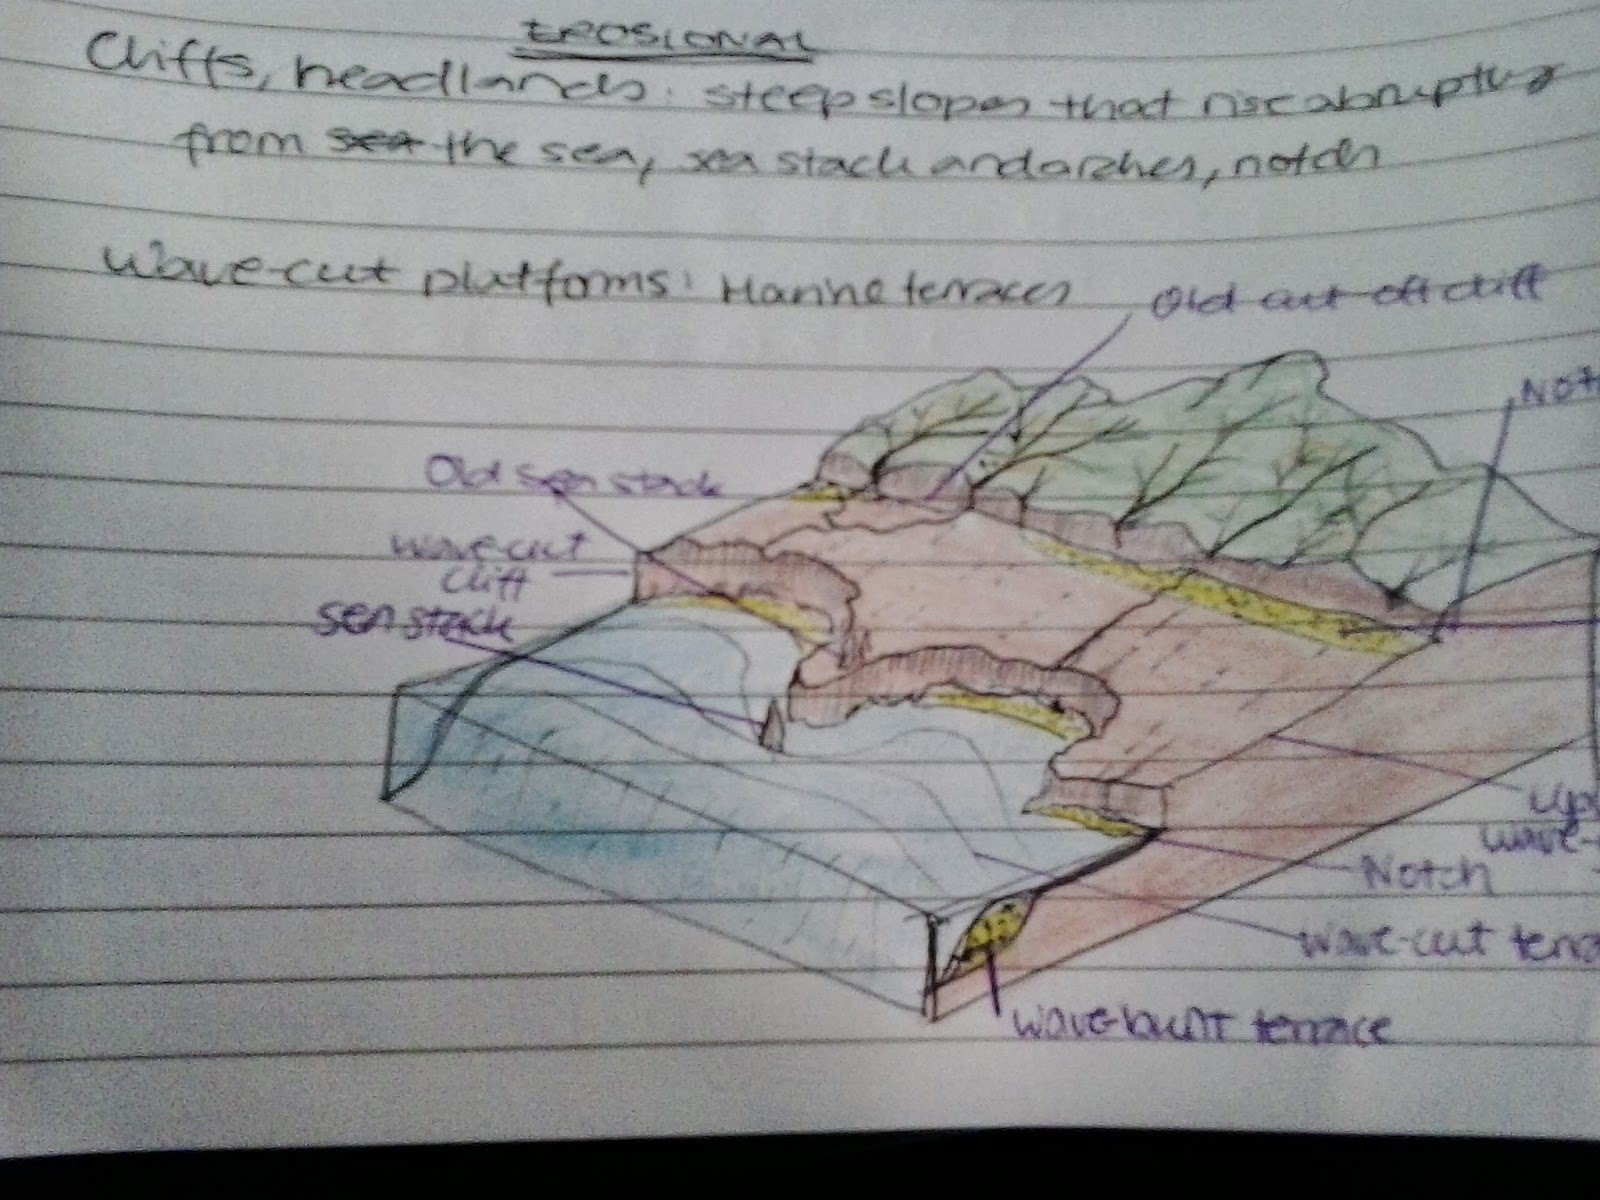 EROSIONAL
Cliffs, headlands: steep slopes that rise abruptly
from sea the sea, sea stack and arches, notch
Wave-cut platforms: Marine terraces
Old cut off cliff
Not
Old sea stack
wave-cut
cliff
sea stack
Upl
wave-
Notch
Wave-cut terra
Wave-built terrace